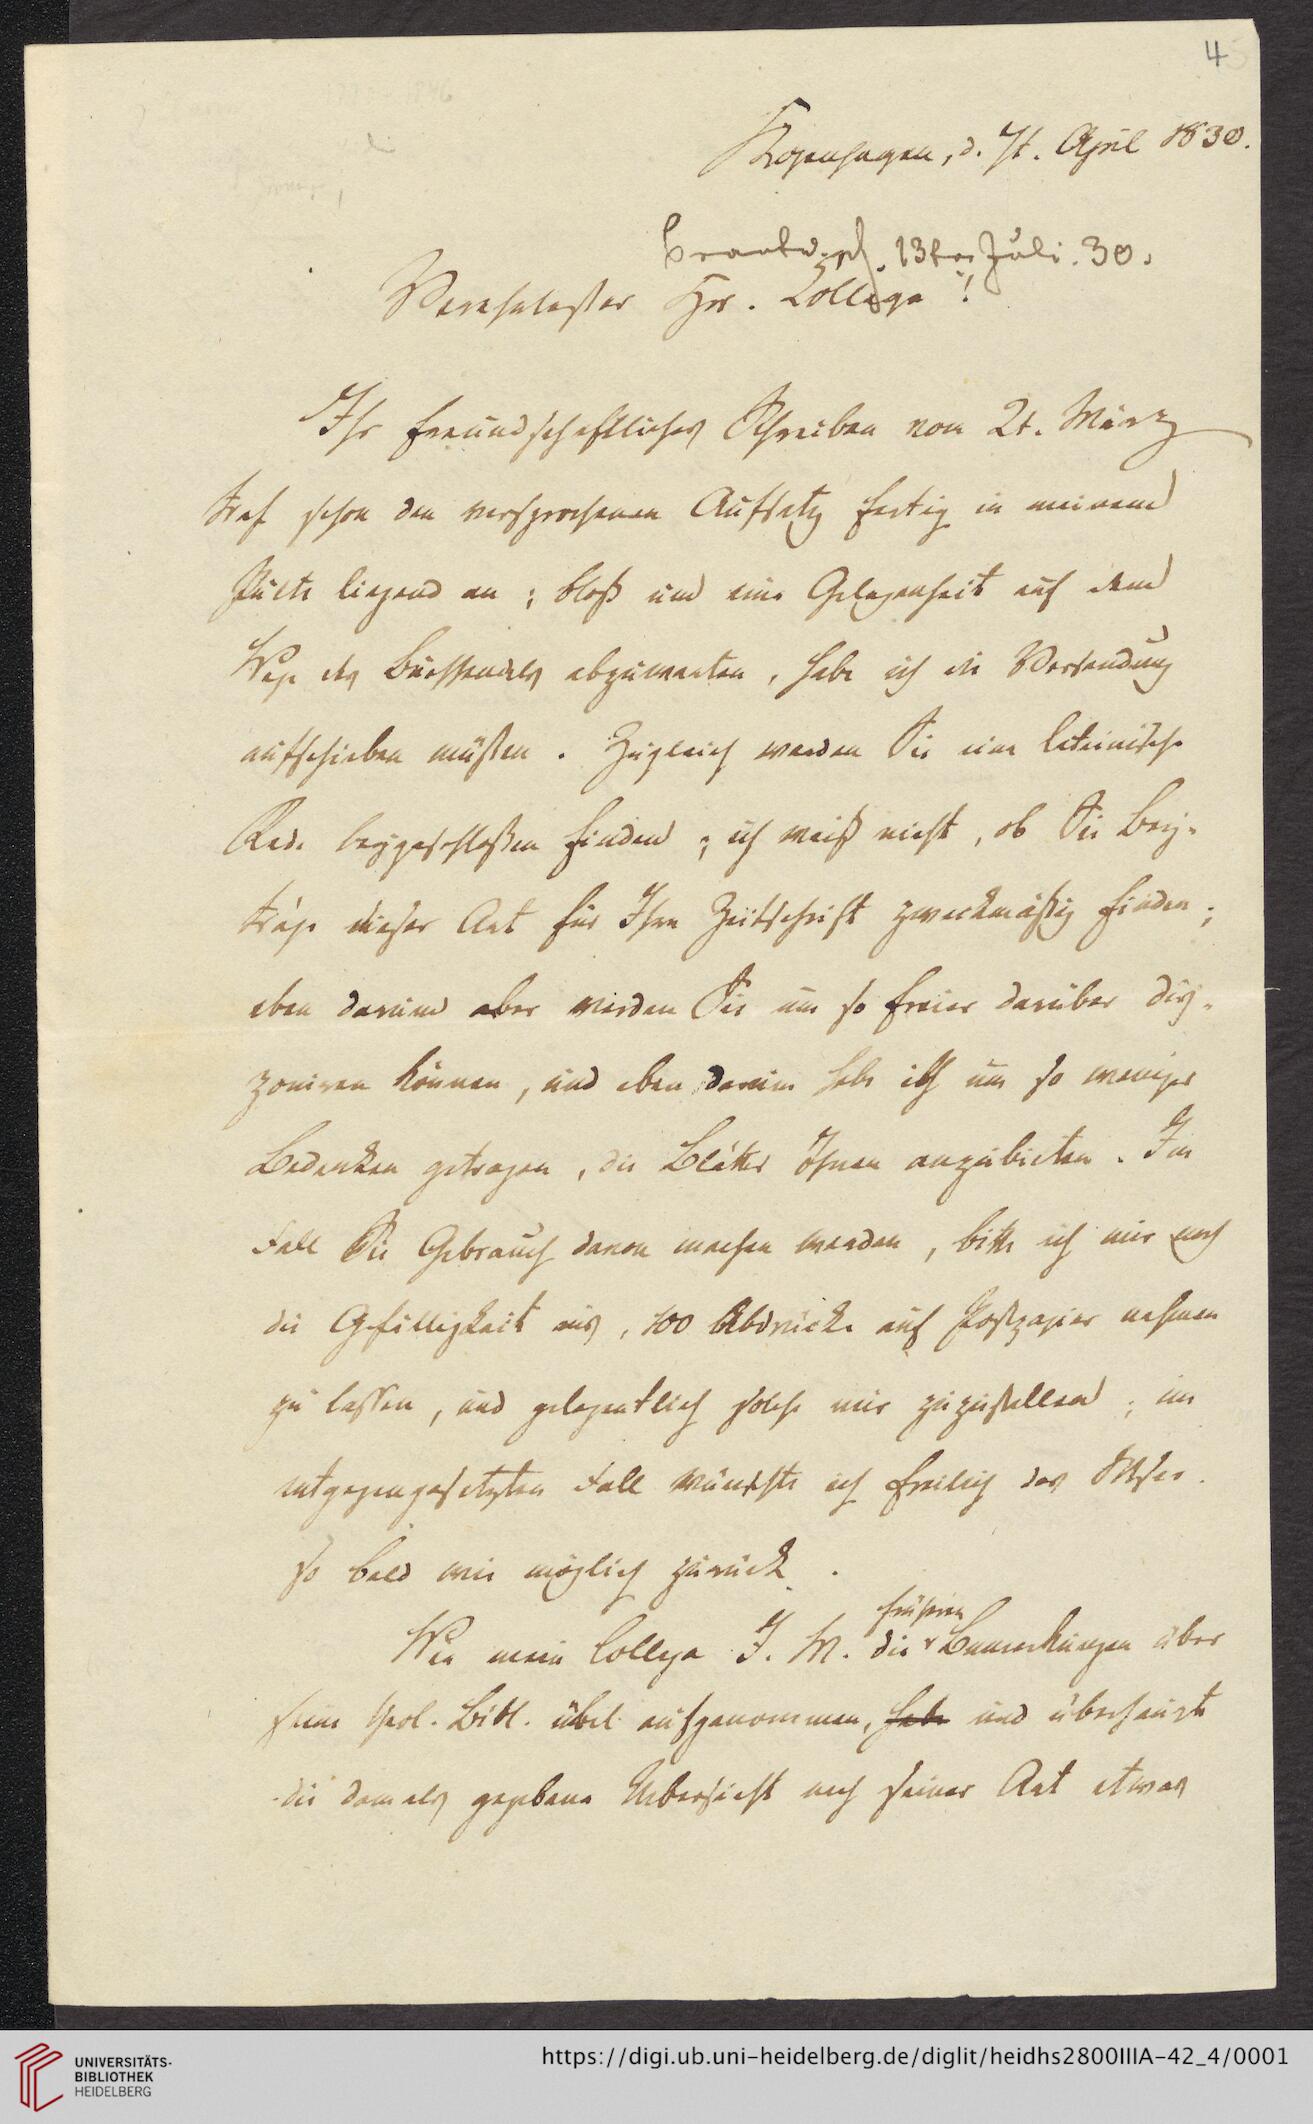 4
Kopenhagen, d. 7t. April 1830.
beantw. d. 13ten Juli. 30.
Verehrtester Hr. College!
Ihr freundschaftliches Schreiben vom 2t. März
traf schon den versprochenen Aufsatz fertig in meinem
Pulte liegend an; bloß um eine Gelegenheit auf dem
Wege des Buchhandels abzuwarten, habe ich die Versendung
aufschieben müßen. Zugleich werden Sie eine lateinische
Rede beygeschloßen finden; ich weiß nicht, ob Sie Bey-
träge dieser Art für Ihre Zeitschrift zweckmäßig finden;
eben darum aber werden Sie um so freier darüber dis-
poniren können, und eben darum habe ich um so weniger
Bedenken getragen, die Blätter Ihnen anzubieten. Im
Fall Sie Gebrauch davon machen werden, bitte ich mir noch
die Gefälligkeit aus, 100 Abdrücke auf Postpapier nehmen
zu lassen, und gelegentlich solche mir zuzustellen; im
entgegengesetzten Fall wünschte ich freilich das Mscr.
so bald wie möglich zurück.
Wie mein College J. M. die früheren Bemerkungen über
seine theol. Bibl. übel aufgenommen, habe und überhaupt
die damals gegebene Uebersicht nach seiner Art etwas
UNIVERSITÄTS-
BIBLIOTHEK
HEIDELBERG
https://digi.ub.uni-heidelberg.de/diglit/heidhs2800IIIA-42_4/0001